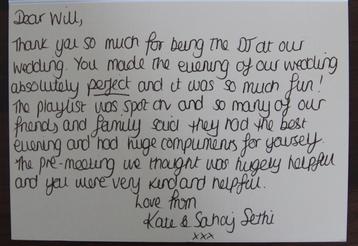 Dear Will,
Thank you so much for being the DJ at our
wedding. You made the evening of our wedding
absolutely perfect and it was so much fun!
The playlist was spot on and so many of our
friends and family said they had the best
evening and had huge compliments for yourself.
The pre-meeting we thought was hugely helpful
and you were very kind and helpful.
Love from
Kate & Sahaj Sethi
xxx